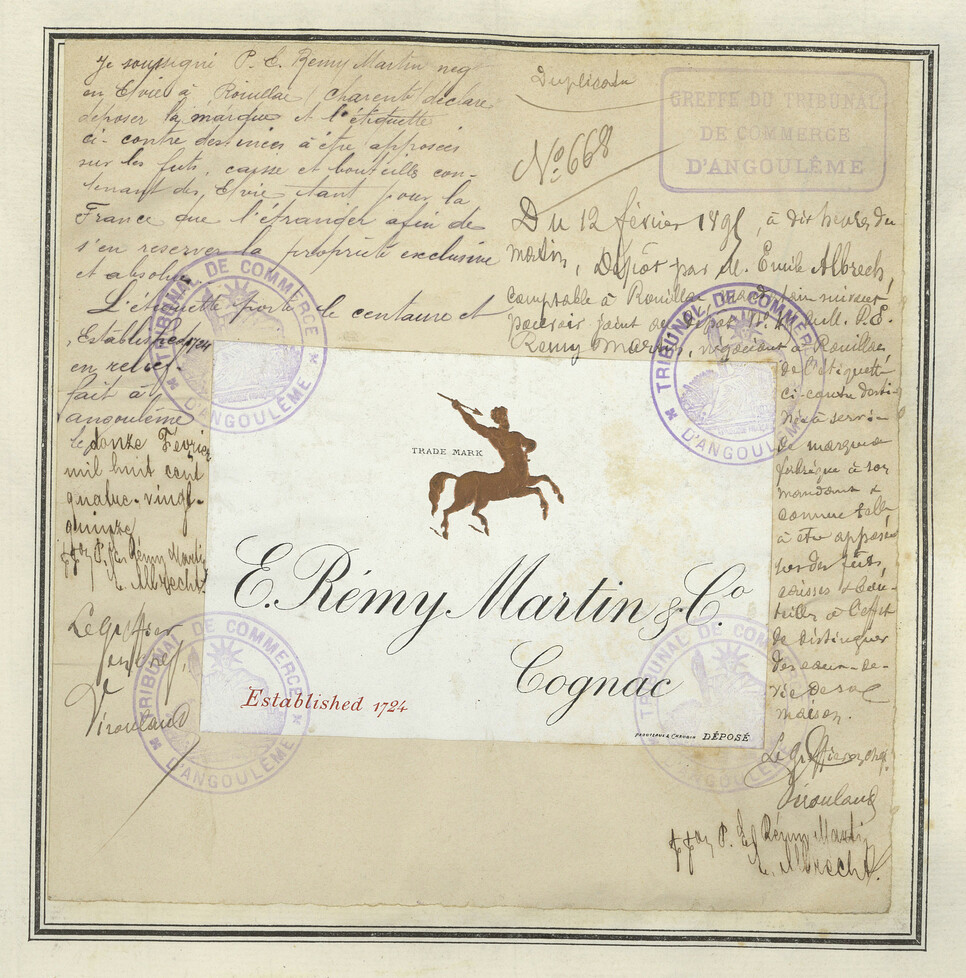 Je soussigné P. E. Rémy Martin neg
en Elvie à Rouillac (Charente déclare
déposer la marque et l'étiquette
ci-contre destinées à être apposées
sur les futs, caisse et bouteilles con-
tenant des Elvie tant pour la
France que l'étranger afin de
s'en reserver la propriété exclusive
et absolue
L'étiquette porte le centaure et
Established 1724
en relief
fait à
angoulême
Le douze Fevrier
mil huit cent
quatre-vingt-
quinze
P. E. Rémy Martin
E. Albrecht
Le Greffier
Virouland
Duplicata
No. 668
GREFFE DU TRIBUNAL
DE COMMERCE
D'ANGOULÊME
Du 12 février 1895, à dix heures du
matin, Dépôt par M. Emile Albrech,
comptable à Rouillac mandataire suivant
pouvoir joint au dépôt No. P. E.
Remy Martin, négociant à Rouillac
de l'étiquette
ci-contre desti-
née à servir
de marque de
fabrique à son
mandant &
comme telle
à être apposée
sur des fûts,
caisses & bou-
teilles à l'effet
de distinguer
des eaux-de-
vie de sa
maison.
Le Greffier
Virouland
P. E. Rémy Martin
E. Albrecht
TRIBUNAL DE COMMERCE
D'ANGOULÊME
TRIBUNAL DE COMMERCE
D'ANGOULÊME
TRADE MARK
E. Rémy Martin & Co
Cognac
Established 1724
DÉPOSÉ
TRIBUNAL DE COMMERCE
D'ANGOULÊME
TRIBUNAL DE COMMERCE
D'ANGOULÊME